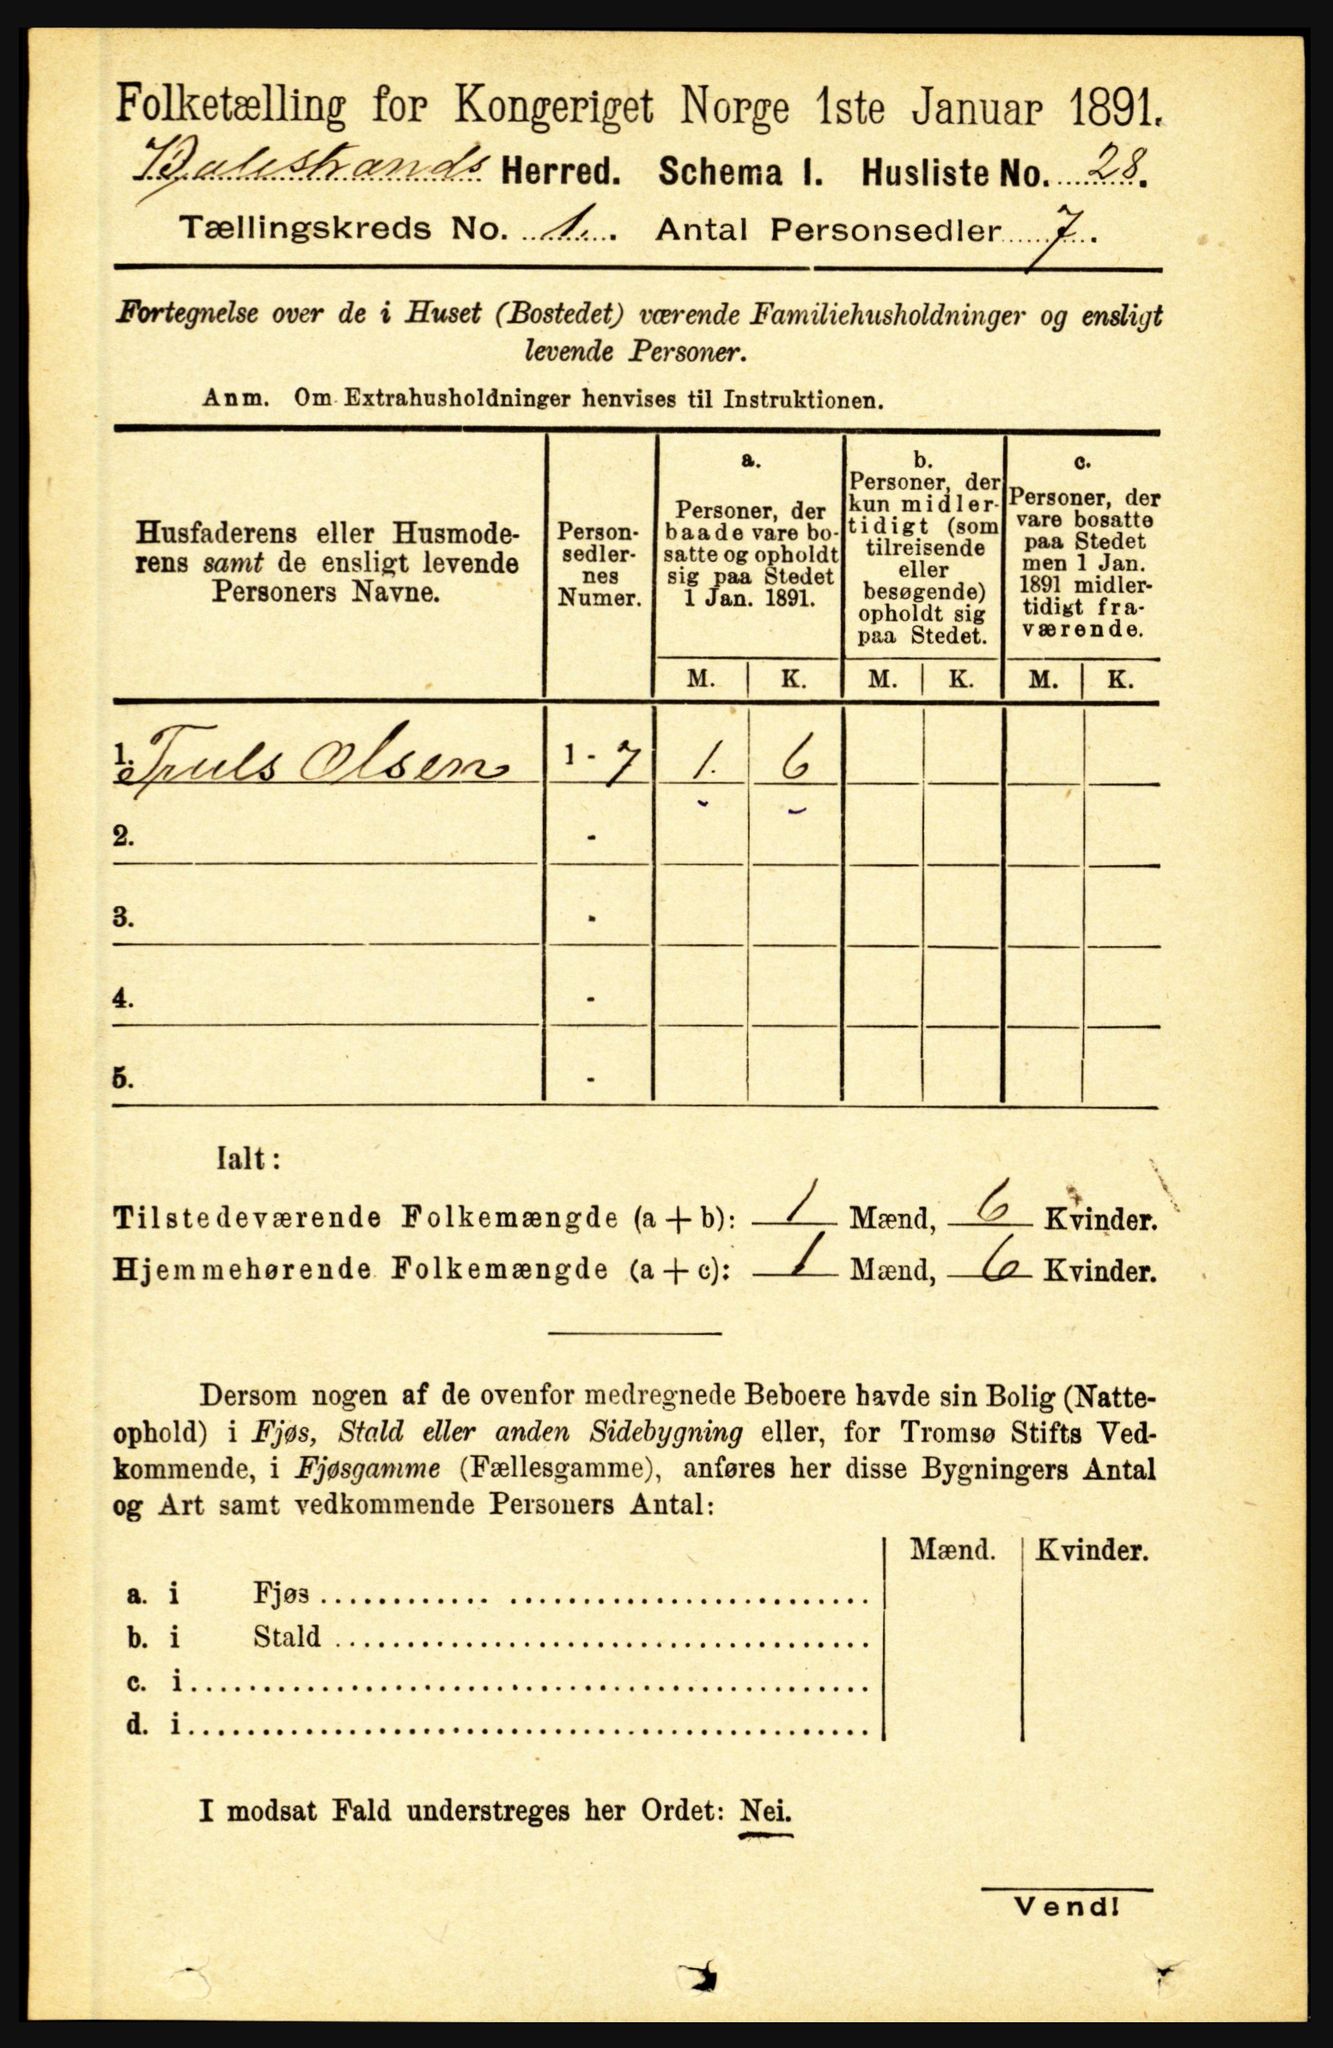 Folketælling for Kongeriget Norge 1ste Januar 1891.
Balestrands Herred. Schema I. Husliste No. 28.
Tællingskreds No. 1. Antal Personsedler 7.
Fortegnelse over de i Huset (Bostedet) værende Familiehusholdninger og ensligt
levende Personer.
Anm. Om Extrahusholdninger henvises til Instruktionen.
Husfaderens eller Husmode-
rens samt de ensligt levende
Personers Navne.
Person-
sedler-
nes
Numer.
a.
Personer, der
baade vare bo-
satte og opholdt
sig paa Stedet
1 Jan. 1891.
b.
Personer, der
kun midler-
tidigt (som
tilreisende
eller
besøgende)
opholdt sig
paa Stedet.
c.
Personer, der
vare bosatte
paa Stedet
men 1 Jan.
1891 midler-
tidigt fra-
værende.
M. K. M. K. M. K.
1. Truls Olsen 1 - 7 1. 6
2. -
3. -
4. -
5. -
Ialt:
Tilstedeværende Folkemængde (a + b): 1 Mænd, 6 Kvinder.
Hjemmehørende Folkemængde (a + c): 1 Mænd, 6 Kvinder.
Dersom nogen af de ovenfor medregnede Beboere havde sin Bolig (Natte-
ophold) i Fjøs, Stald eller anden Sidebygning eller, for Tromsø Stifts Ved-
kommende, i Fjøsgamme (Fællesgamme), anføres her disse Bygningers Antal
og Art samt vedkommende Personers Antal:
Mænd. Kvinder.
a. i Fjøs
b. i Stald
c. i
d. i
I modsat Fald understreges her Ordet: Nei.
Vend!